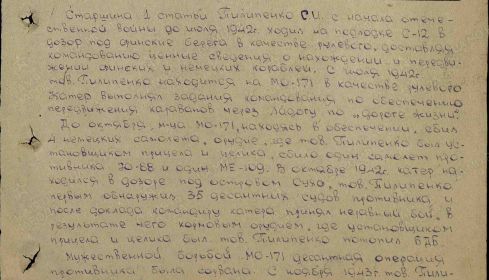 Старшина 1 статьи Пилипенко С.И. с начала отече-
ственной войны до июля 1942г. ходил на подлодке С-12 в
дозор под финские берега в качестве рулевого, доставляя
командованию ценные сведения о нахождении и передви-
жении финских и немецких кораблей. С июля 1942г.
тов. Пилипенко находится на МО-171 в качестве рулевого
Катер выполнял задания командования по обеспечению
передвижения караванов через Ладогу по „дороге жизни".
До октября м-ца МО-171, находясь в обеспечении, сбил
4 немецких самолета, орудие, где тов. Пилипенко был ус-
тановщиком прицела и целика, сбило один самолет про-
тивника Ю-88 и один МЕ-109. В октябре 1942г. катер на-
ходился в дозоре под островом Сухо, тов. Пилипенко
первым обнаружил 35 десантных судов противника и
после доклада командиру катера принял неравный бой. в
результате чего кормовым орудием, где установщиком
прицела и целика был тов. Пилипенко потопил БДБ.
Мужественной борьбой МО-171 десантная операция
противника была сорвана. С ноября 1943г. тов. Пили-